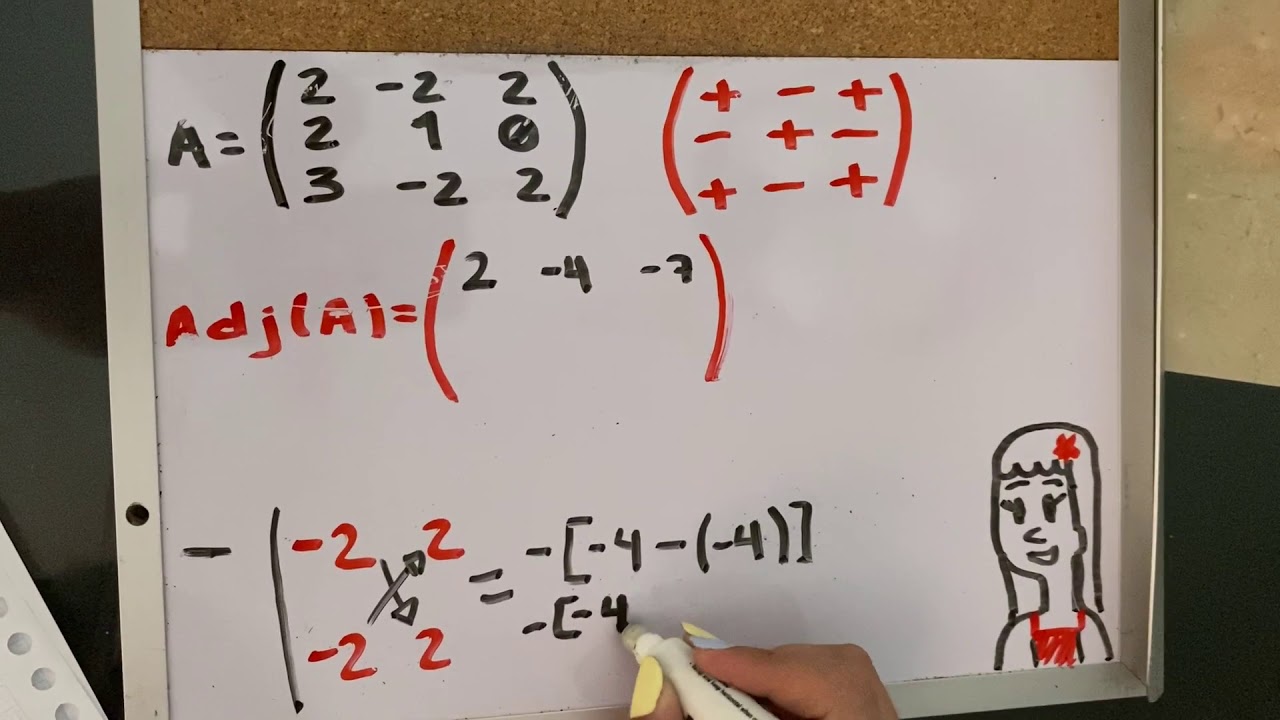 A = ( 2 -2 2
2 1 0
3 -2 2 )
( + - +
- + -
+ - + )
Adj(A) = ( 2 -4 -7 )
- | -2 2
-2 2
= -[-4-(-4)]
-[-4